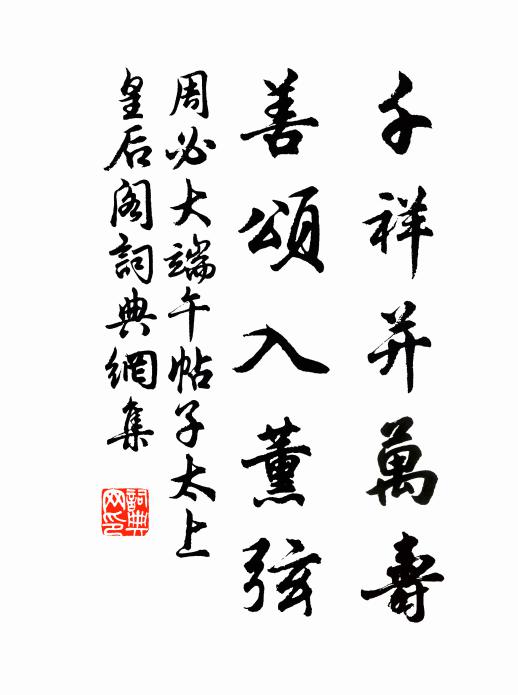 千祥并萬壽
善頌入薰弦
周必大端午帖子太上
皇后阁詞典網集
詞典
网印